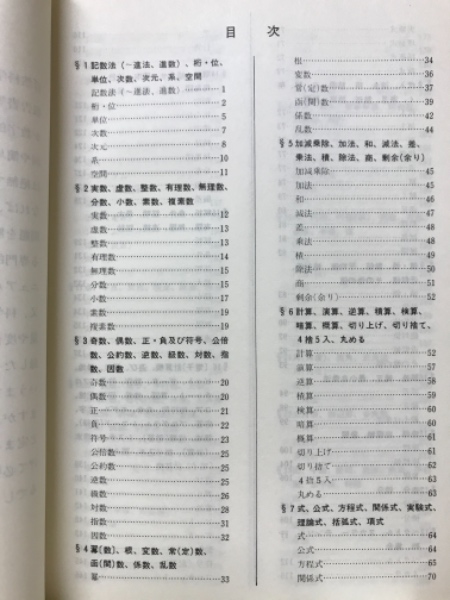 目 次
§1 記数法(〜進法、進数)、桁・位、
単位、次数、次元、系、空間
記数法(〜進法、進数)……1
桁・位……2
単位……5
次数……7
次元……8
系……10
空間……11
§2 実数、虚数、整数、有理数、無理数、
分数、小数、素数、複素数
実数……12
虚数……13
整数……13
有理数……14
無理数……15
分数……15
小数……17
素数……19
複素数……19
§3 奇数、偶数、正・負及び符号、公倍
数、公約数、逆数、級数、対数、指
数、因数
奇数……20
偶数……20
正……21
負……22
符号……23
公倍数……25
公約数……25
逆数……25
級数……26
対数……28
指数……31
因数……32
§4 冪(数)、根、変数、常(定)数、
函(関)数、係数、乱数
冪……33
根……34
変数……36
常(定)数……37
函(関)数……39
係数……42
乱数……44
§5 加減乗除、加法、和、減法、差、
乗法、積、除法、商、剰余(余り)
加減乗除……45
加法……45
和……46
減法……47
差……48
乗法……48
積……49
除法……50
商……51
剰余(余り)……52
§6 計算、演算、逆算、積算、検算、
暗算、概算、切り上げ、切り捨て、
4捨5入、丸める
計算……52
演算……57
逆算……58
積算……59
検算……60
暗算……60
概算……61
切り上げ……61
切り捨て……62
4捨5入……63
丸める……63
§7 式、公式、方程式、関係式、実験式、
理論式、括弧式、項式
式……64
公式……64
方程式……65
関係式……70